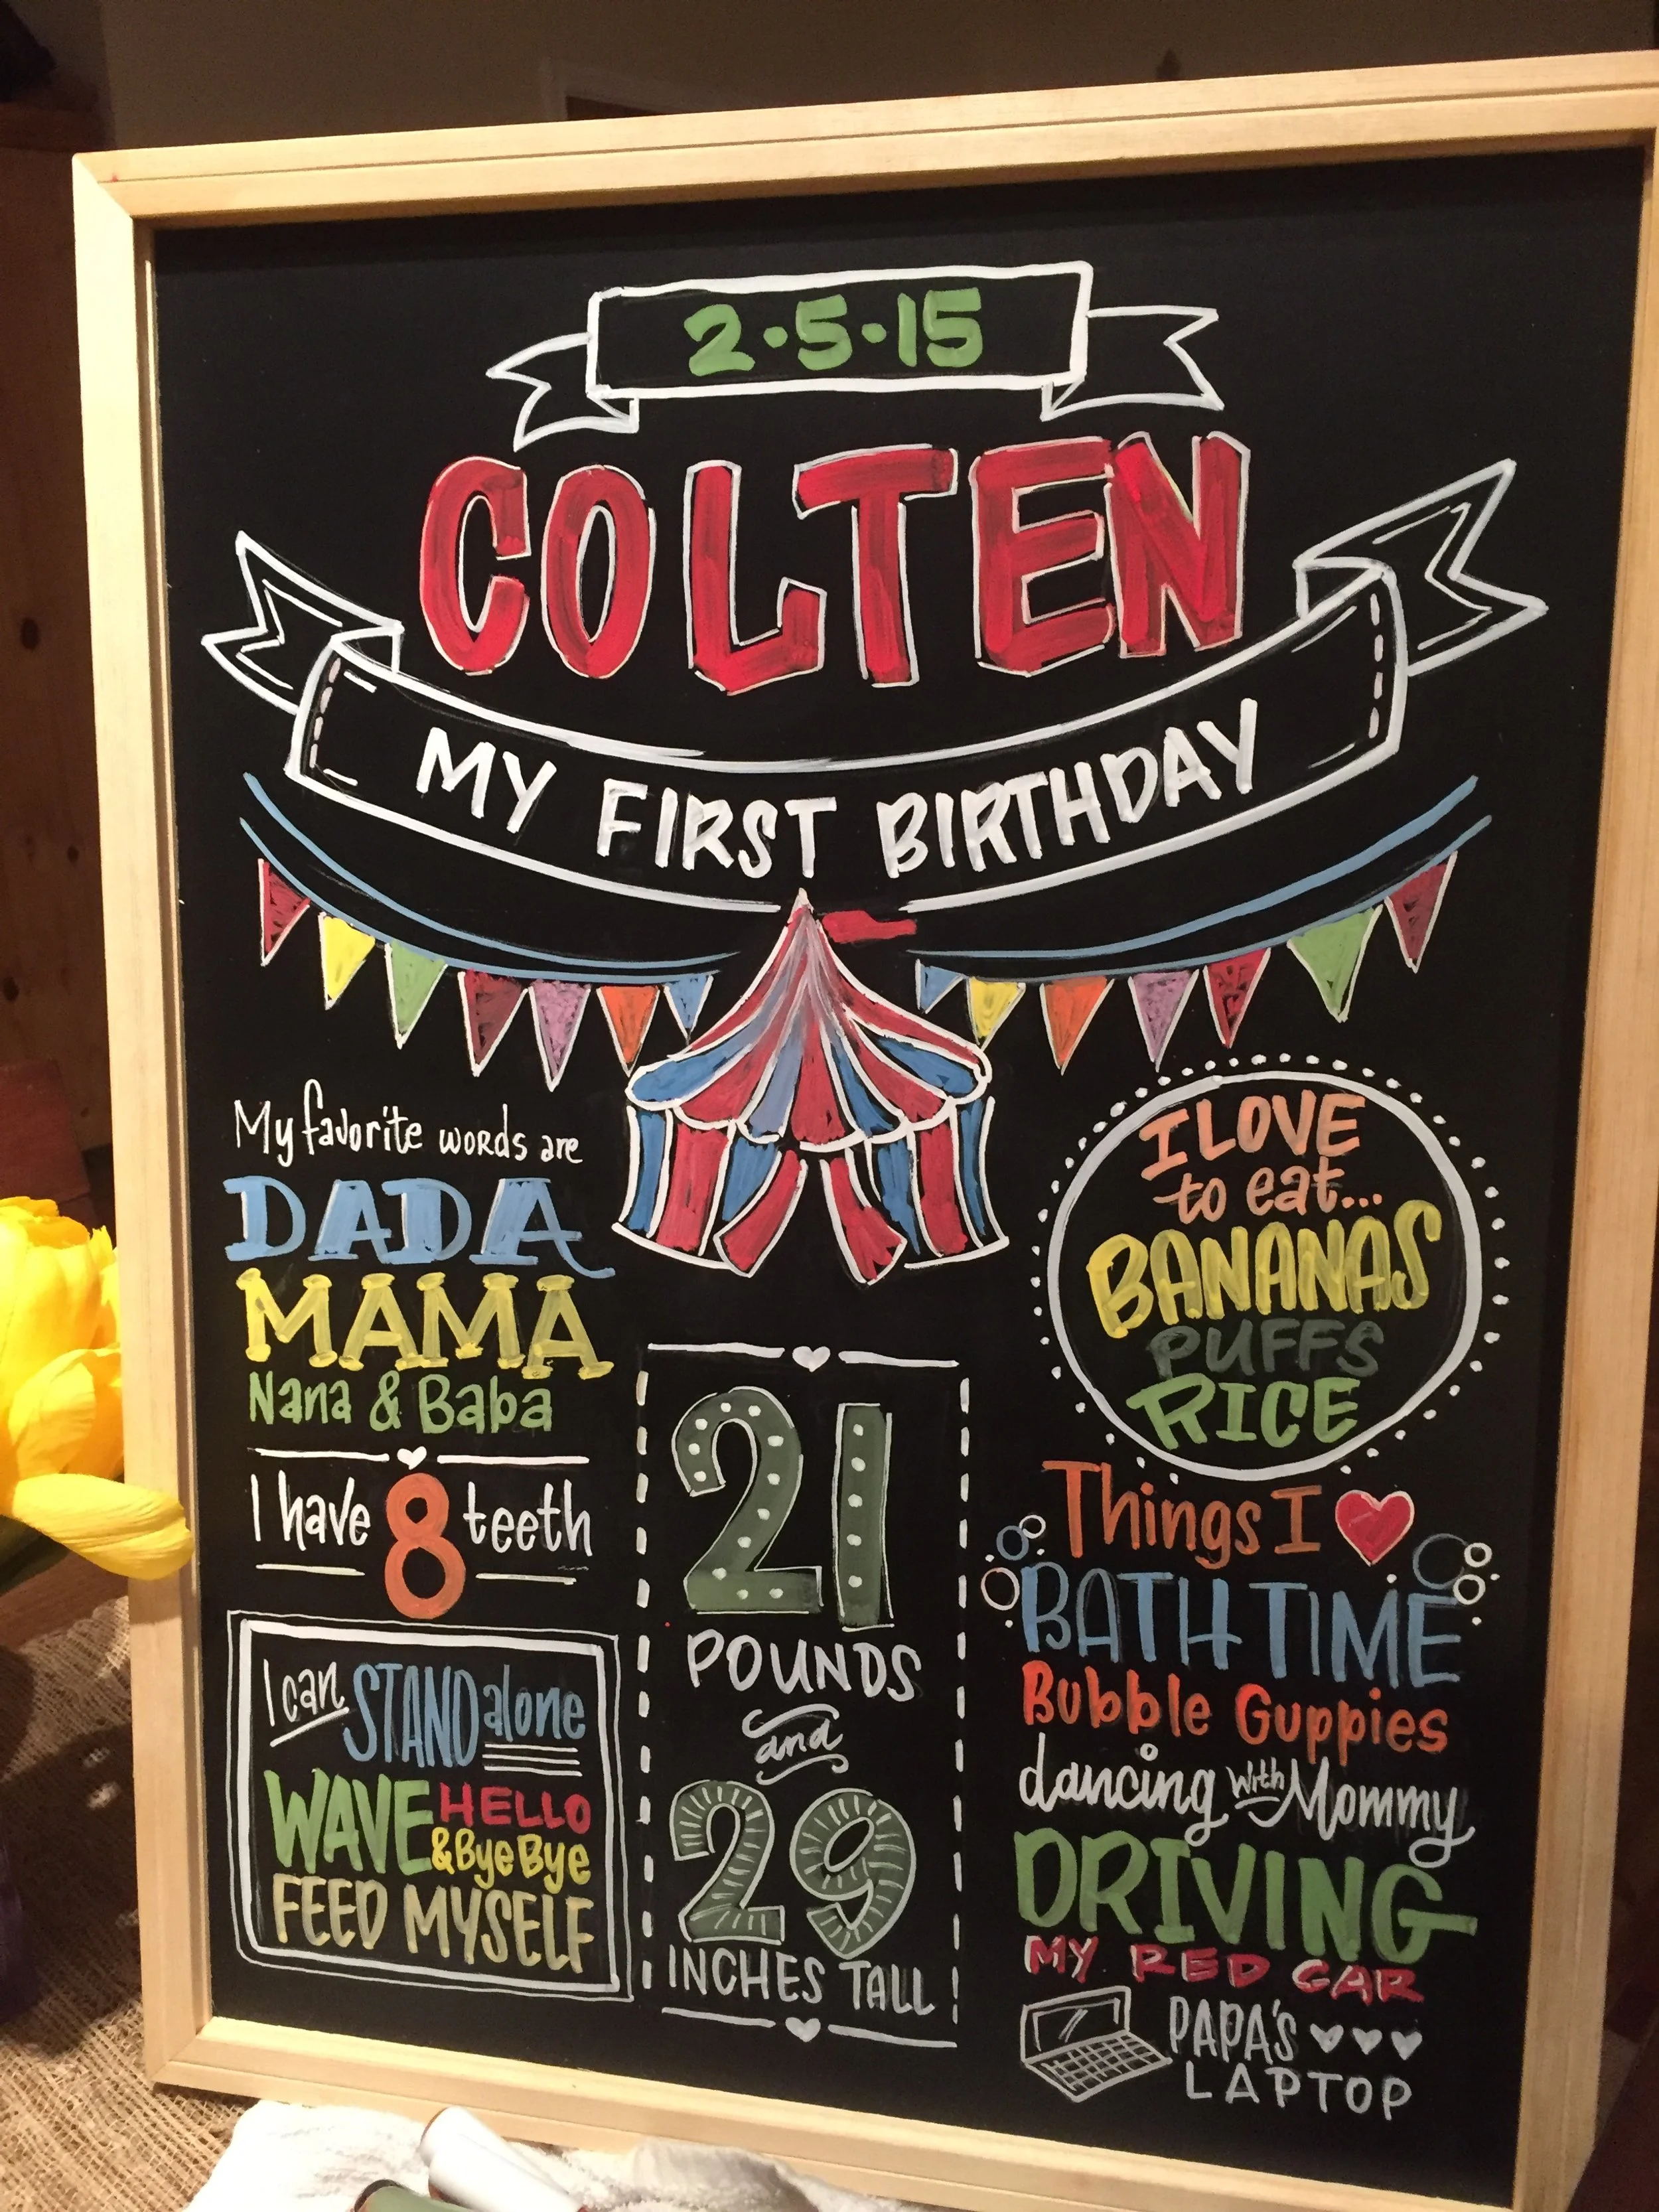 2·5·15
COLTEN
MY FIRST BIRTHDAY
My favorite words are
DADA
MAMA
Nana & Baba
I have 8 teeth
I can STAND alone
WAVE HELLO
& Bye Bye
FEED MYSELF
21
POUNDS
and
29
INCHES TALL
I LOVE
to eat...
BANANAS
PUFFS
RICE
Things I ♥
BATH TIME
Bubble Guppies
dancing with Mommy
DRIVING
MY RED CAR
PAPA'S ♥♥♥
LAPTOP